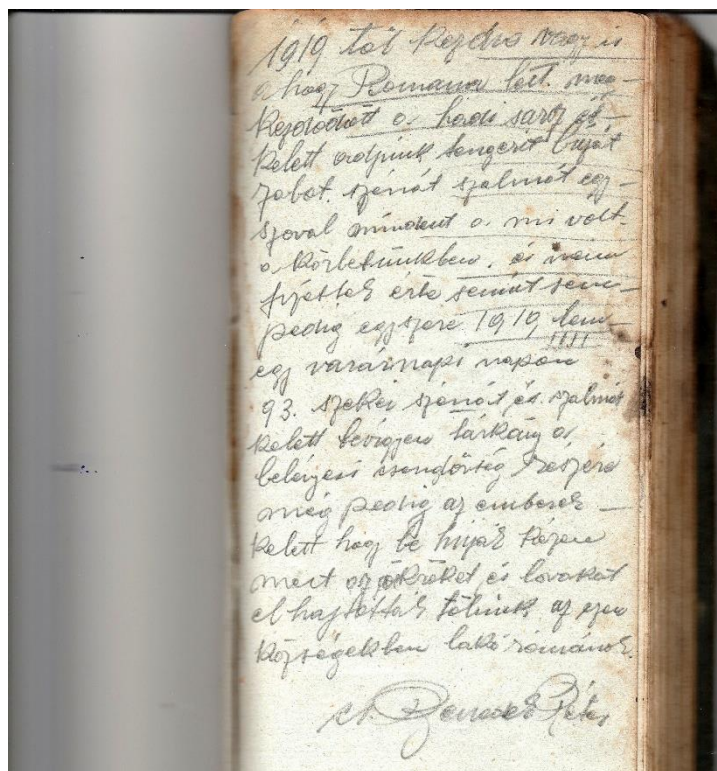 1919 től kezdve vagy is
a hogy Romania lett meg-
kezdödött a hadi sarcz és
kelett adjunk tengerit buzát
zabot. szénát szalmát egy-
szoval mindent a mi volt
a körletünkben. és nem
fizettek érte semit sem
pedig egyszere 1919 ben
egy vasárnapi napon
93. szekér szénát és szalmát
kelett bevigyen Tárkány a
belényesi csendörség részére
még pedig az emberek
kelett hogy be huzák kézen
mert az ökröket és lovakat
el hajtották tölünk az ezen
községekben lakó románok.
Péter